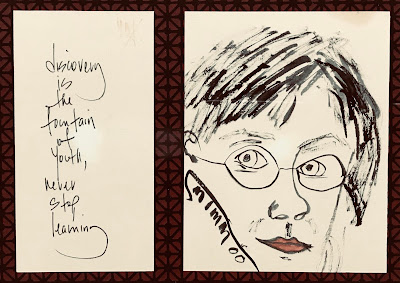 discovery
is
the
fountain
of
youth,
never
stop
learning